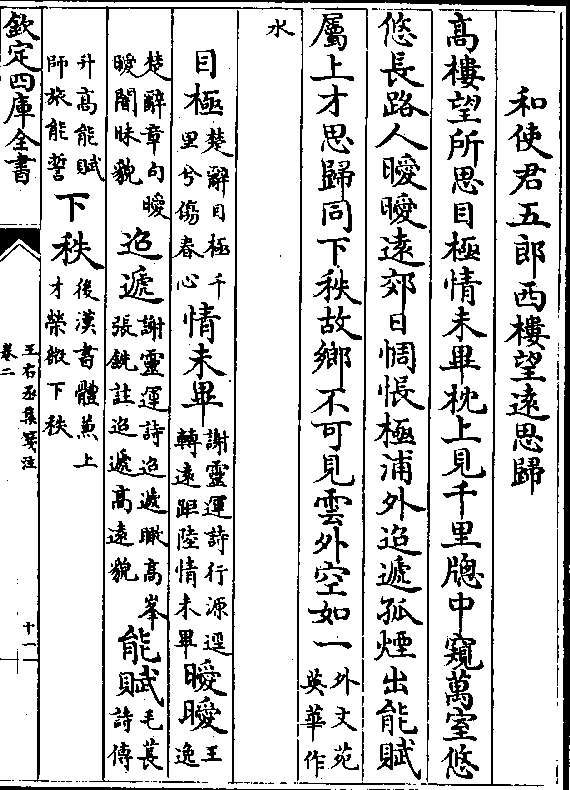 和使君五郎西樓望遠思歸
高樓望所思目極情未畢枕上見千里牎中窺萬室悠
悠長路人曖曖遠郊日惆悵極浦外迢遞孤煙出能賦
屬上才思歸同下秩故鄉不可見雲外空如一外文苑英華作
水
目極楚辭目極千里兮傷春心情未畢謝靈運詩行源逕轉遠距陸情未畢曖曖王逸
楚辭章句曖曖闇昧貌迢遞謝靈運詩迢遞瞰高峯張銑註迢遞高遠貌能賦毛萇詩傳
升高能賦師旅能誓下秩後漢書體兼上才榮微下秩
欽定四庫全書
王右丞集箋注
卷二